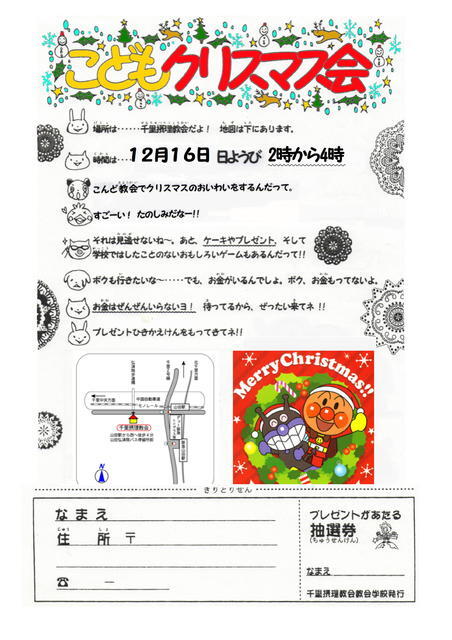 こどもクリスマス会
場所は‥‥‥千里摂理教会だよ！ 地図は下にあります。
時間は‥‥12月16日 日ようび 2時から4時
こんど教会でクリスマスのおいわいをするんだって。
すごーい! たのしみだなー!!
それは見逃せないね～。あと、ケーキやプレゼント、そして
学校ではしたことのないおもしろいゲームもあるんだって!!
ボクも行きたいな～‥‥‥でも、お金がいるんでしょ。ボク、お金もってないよ。
お金はぜんぜんいらないヨ！ 待ってるから、ぜったい来てネ!!
プレゼントひきかえけんをもってきてネ!!
千里中央方面
中国自動車道
モノレール
山田駅
千里摂理教会
山田駅から西へ徒歩4分
N
Merry Christmas!!
きりとりせん
なまえ
じゅう しょ
住 所 〒
☎ ー
プレゼントがあたる
抽選券
(ちゅうせんけん)
なまえ
千里摂理教会教会学校発行